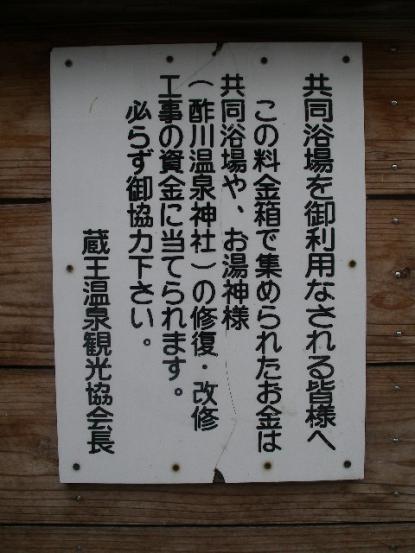 共同浴場を御利用なされる皆様へ
この料金箱で集められたお金は
共同浴場や、お湯神様
（酢川温泉神社）の修復・改修
工事の資金に当てられます。
必らず御協力下さい。
蔵王温泉観光協会長